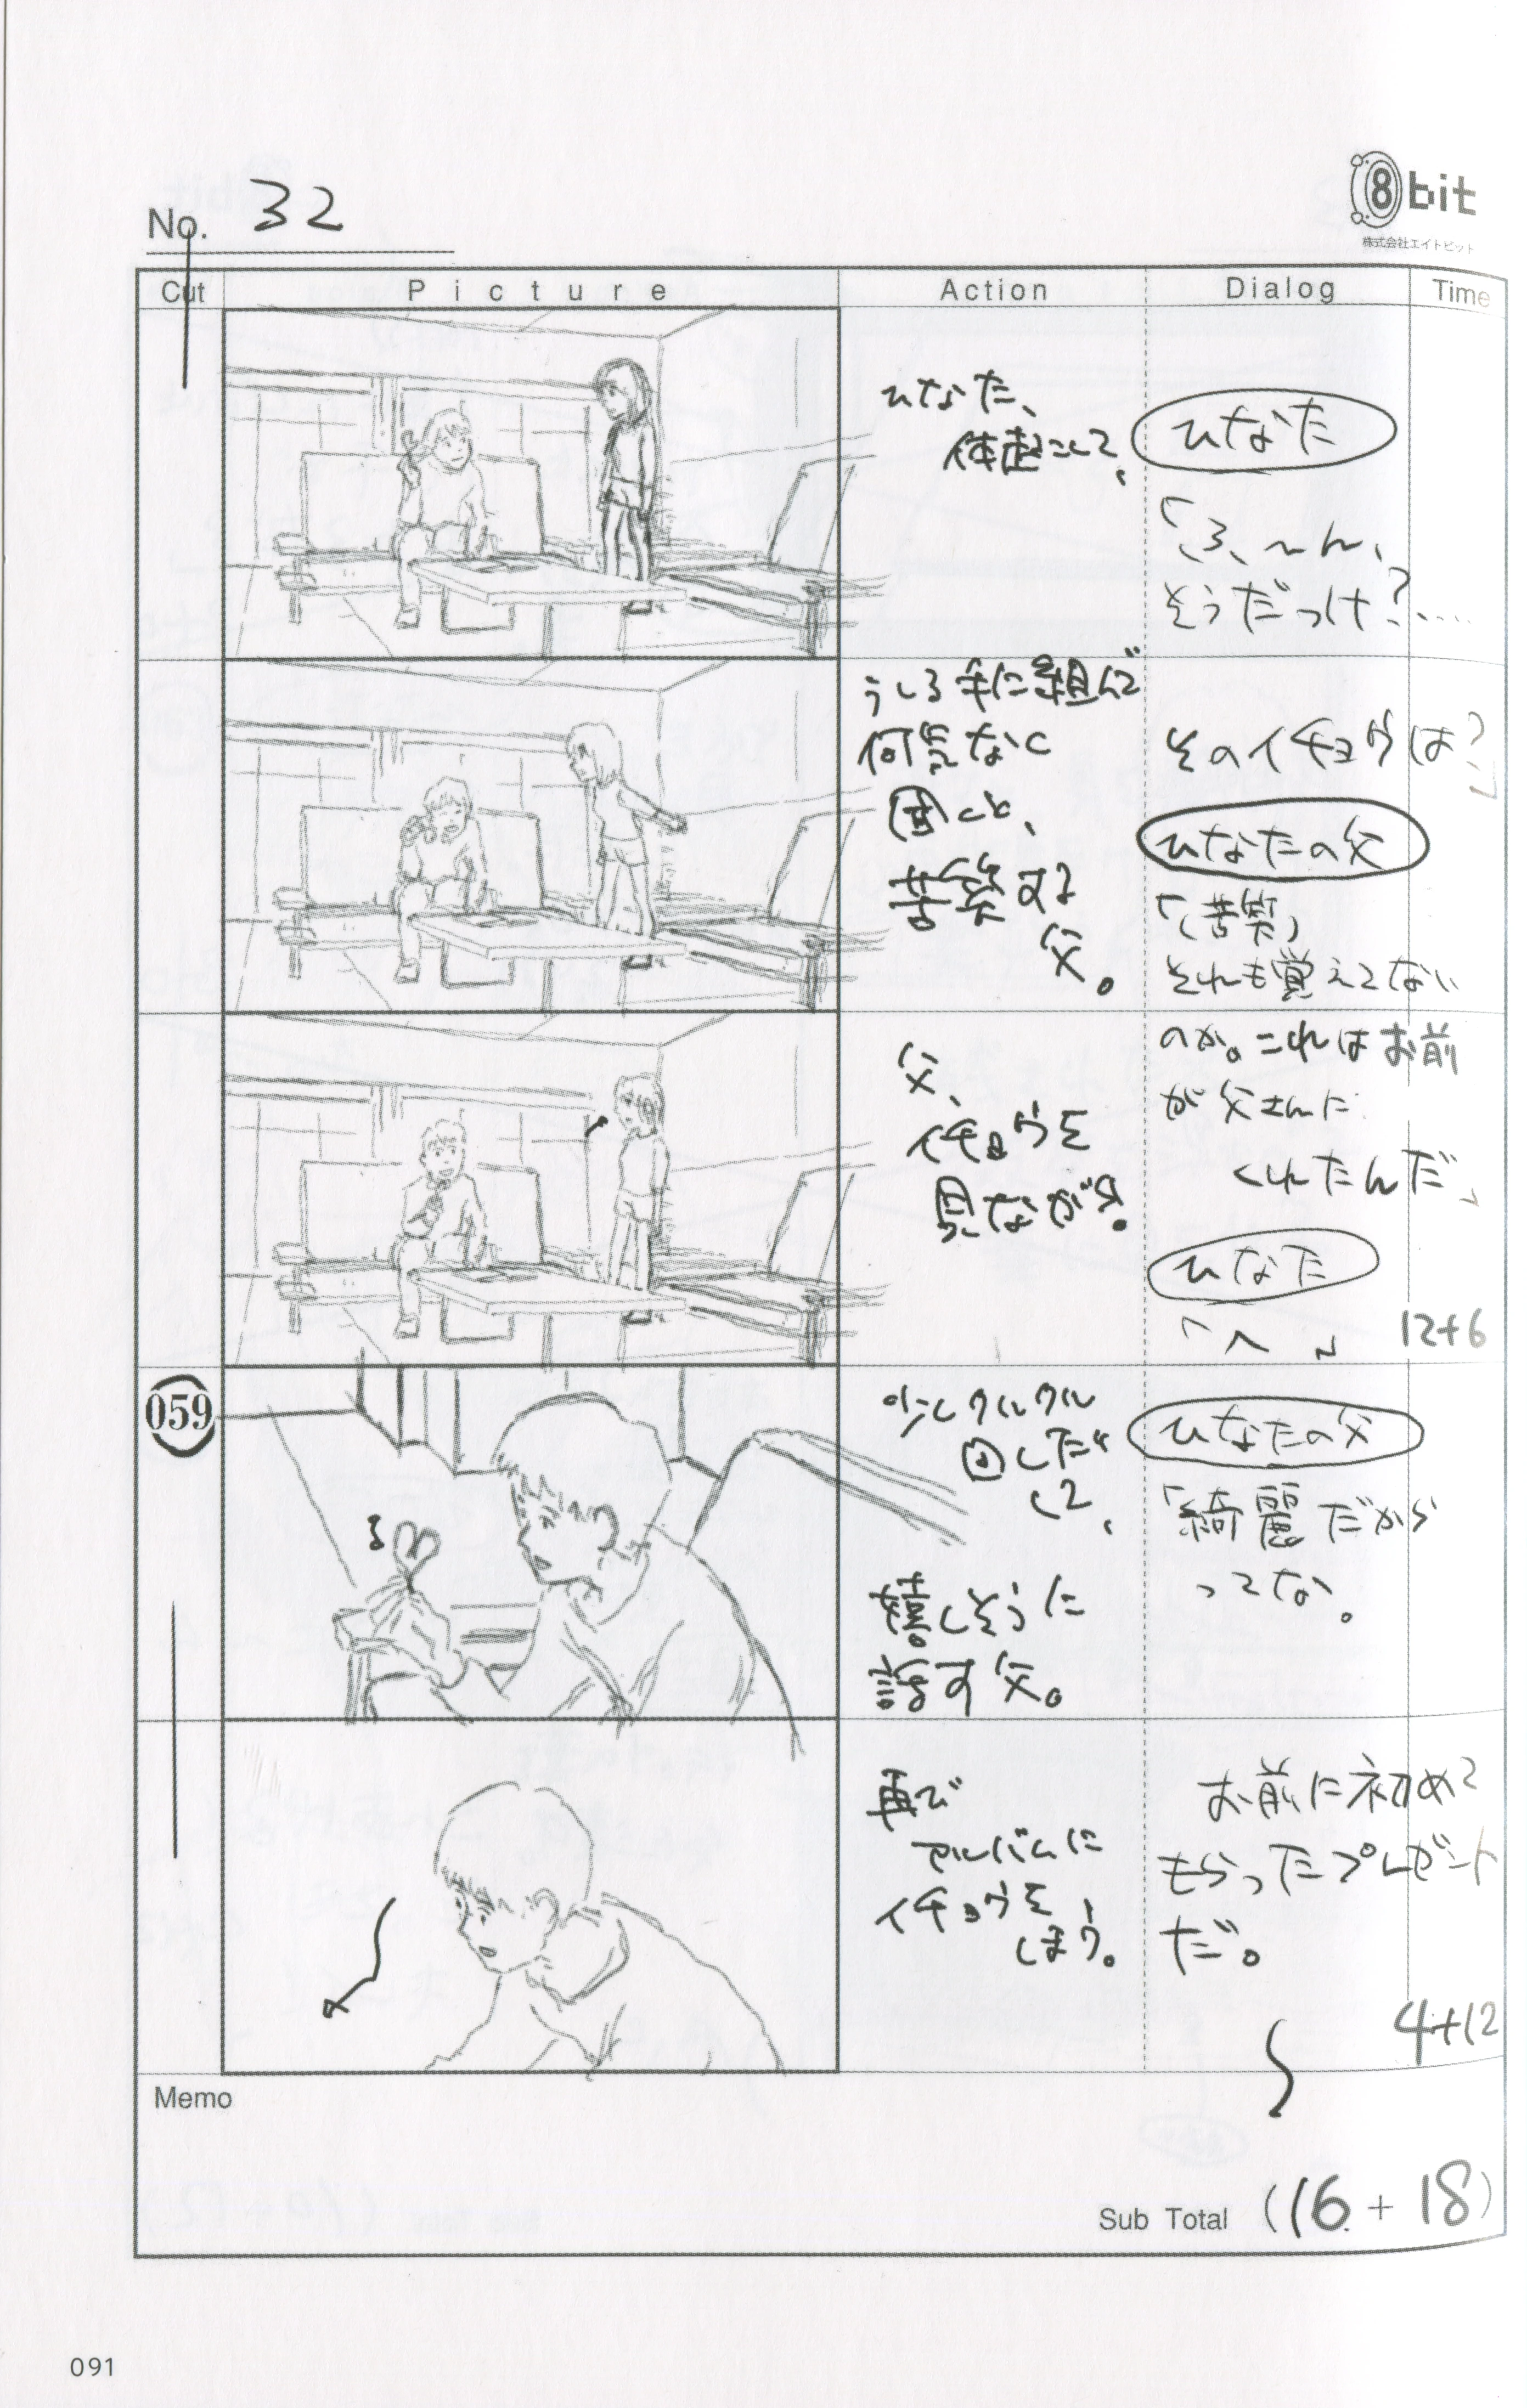 No. 32
8bit
株式会社エイトビット
Cut Picture Action Dialog Time
ひなた、
体起こして、
ひなた
「ふ〜ん、
そうだっけ?……
うしろ手に組んで
何気なく
聞くと、
苦笑する
父。
そのイチョウは?」
ひなたの父
「(苦笑)
それも覚えてない
父、
イチョウを
見ながら。
のか。これはお前
が父さんに
くれたんだ」
ひなた
「へ 」
12+6
059
少しクルクル
回したり
して、
嬉しそうに
話す父。
ひなたの父
「綺麗だから
ってな。
再び
アルバムに
イチョウを、
しまう。
お前に初めて
もらったプレゼント
だ。
4+12
Memo
Sub Total (16 + 18)
091